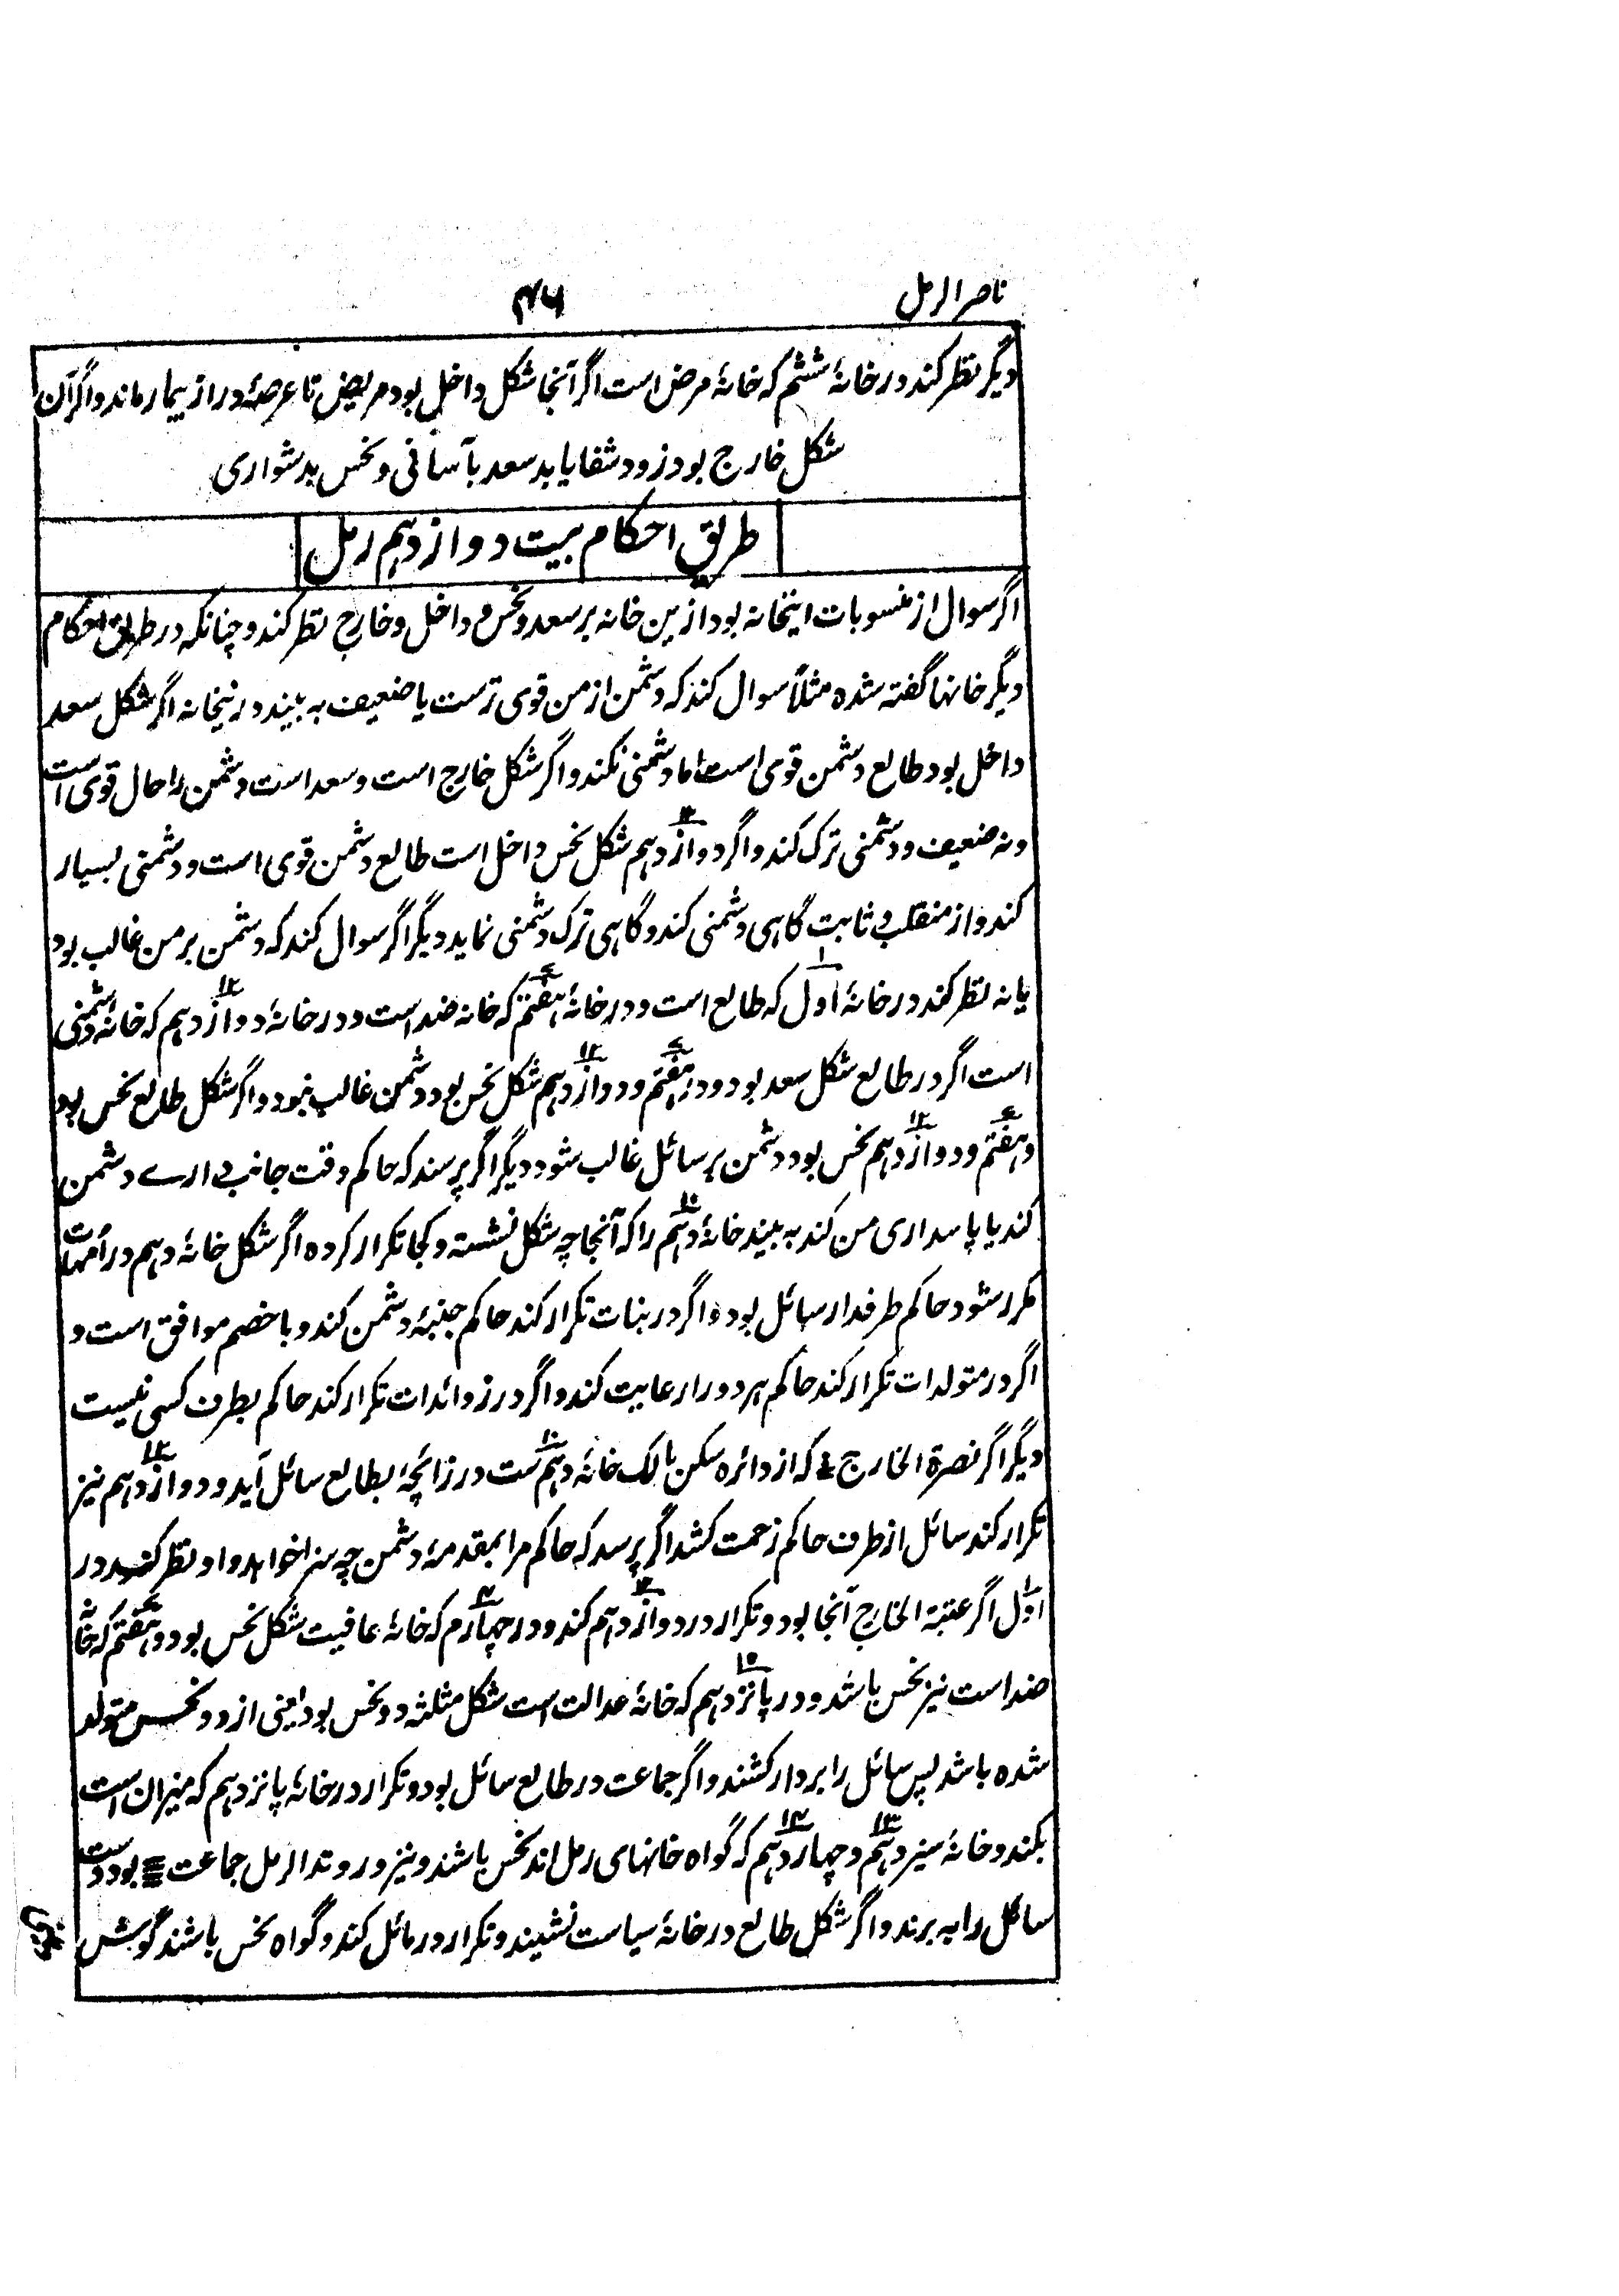 ناصر الرمل ۴۶
دیگر نظر کند در خانۂ ششم که خانۂ مرض است اگر آنجا شکل داخل بود مریض تا عرصۂ دراز بیمار ماند و اگر آن
شکل خارج بود زود شفا یابد سعد بآسانی و نحس بدشواری
طریق احکام بیت دوازدہم رمل
اگر سوال از منسوبات اینخانه بود ازین خانه بر سعد و نحس و داخل و خارج نظر کند و چنانکه در طریق احکام
دیگر خانہا گفته شده مثلاً سوال کند که دشمن از من قوی ترست یا ضعیف به بیند درینخانه اگر شکل سعد
داخل بود طالع دشمن قوی است اما دشمنی نکند و اگر شکل خارج است و سعد است دشمن را حال قوی است
و نه ضعیف و دشمنی ترک کند و اگر دوازدہم ۱۲ شکل نحس داخل است طالع دشمن قوی است و دشمنی بسیار
کند و از منقلب ثابت گاہی دشمنی کند و گاہی ترک دشمنی نماید دیگر اگر سوال کند که دشمن بر من غالب بود
یا نه نظر کند در خانۂ اول ۱ که طالع است و در خانۂ ہفتم ۷ که خانه ضد است و در خانۂ دوازدہم ۱۲ که خانۂ دشمنی
است اگر در طالع شکل سعد بود و در ہفتم ۷ و دوازدہم ۱۲ شکل نحس بود دشمن غالب نبود و اگر شکل طالع نحس بود
و ہفتم ۷ و دوازدہم ۱۲ نحس بود دشمن بر سائل غالب شود دیگر اگر پرسند که حاکم وقت جانب داری دشمن
کند یا پاسداری من کند به بیند خانۂ دہم ۱۰ را که آنجا چه شکل نشسته و کجا تکرار کرده اگر شکل خانۂ دہم در امہات
مکرر شود حاکم طرفدار سائل بود و اگر در بنات تکرار کند حاکم جنبۂ دشمن کند و با خصم موافق است و
اگر در متولدات تکرار کند حاکم ہر دو را رعایت کند و اگر در زوائدات تکرار کند حاکم بطرف کسی نیست
دیگر اگر نصرة الخارج که از دائره سکن مالک خانۂ دہم ۱۰ ست در زائچۂ بطالع سائل آید و دوازدہم ۱۲ نیز
تکرار کند سائل از طرف حاکم زحمت کشد اگر پرسد که حاکم مرا بمقدمۂ دشمن چه سزا خواہد داد نظر کند در
اول ۱ اگر عتبة الخارج آنجا بود و تکرار در دوازدہم ۱۲ کند و در چہارم ۴ که خانۂ عافیت شکل نحس بود و ہفتم ۷ که خانۂ
ضد است نیز نحس باشد و در پانزدہم ۱۵ که خانۂ عدالت است شکل مثلثه دو نحس بود یعنی از دو نحس متولد
شده باشد پس سائل را بر دار کشند و اگر جماعت در طالع سائل بود و تکرار در خانۂ پانزدہم که میزان است
بکند و خانۂ سیزدہم ۱۳ و چہاردہم ۱۴ که گواه خانہای رمل اند نحس باشند و نیز در وتد الرمل جماعت ☰ بود دست
سائل را به برند و اگر شکل طالع در خانۂ سیاست نشیند و تکرار در مائل کند و گواه نحس باشند گوش